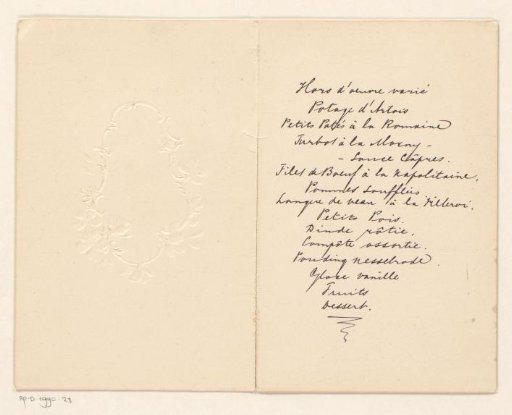 Hors d'oeuvre varié
Potage d'Artois
Petits Patés à la Romaine
Turbot à la Mornay -
- Sauce Câpres.
Filet de Boeuf à la Napolitaine.
Pommes Soufflées
Langue de veau à la Villeroi.
Petits Pois.
Dinde rôtie.
Compôte assortie.
Pouding Nesselrode.
Glace vanille
Fruits
Dessert.
RP-D-1990-28